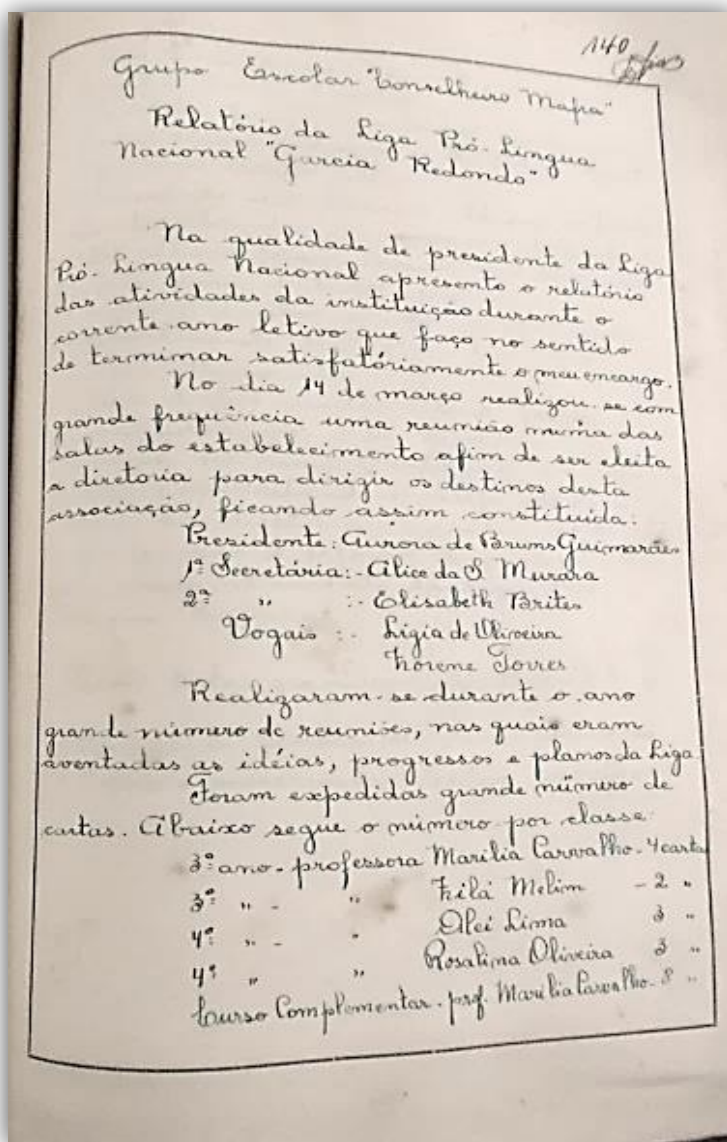 140
Grupo Escolar "Conselheiro Mafra"
Relatório da Liga Pró-Lingua
Nacional "Garcia Redondo"
Na qualidade de presidente da Liga
Pró-Lingua Nacional apresento o relatório
das atividades da instituição durante o
corrente ano letivo que faço no sentido
de terminar satisfatóriamente o meu encargo.
No dia 14 de março realizou-se com
grande frequência uma reunião numa das
salas do estabelecimento afim de ser eleita
a diretoria para dirigir os destinos desta
associação, ficando assim constituída:
Presidente: Aurora de Bruns Guimarães
1ª Secretária:- Alice da S. Murara
2ª " :- Elisabeth Brites
Vogais :- Ligia de Oliveira
Torres
Realizaram-se durante o ano
grande número de reuniões, nas quais eram
aventadas as idéias, progressos e planos da Liga
Foram expedidas grande número de
cartas. Abaixo segue o número por classe
3º ano - professora Marilia Carvalho - 4 carta
3º " - " Melim - 2 "
4º " - " Lima 3 "
4º " " Rosalina Oliveira 3 "
Curso Complementar - prof. Marilia Carvalho - 8 "